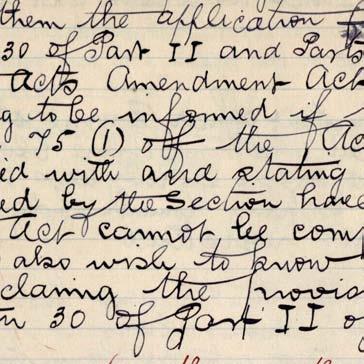 them the application
30 of Part II and Parts
Acts Amendment Act
g to be informed if
75 (1) of the Ac
ed with and stating
ed by the Section have
Act cannot be com
also wish to know
claring the provis
n 30 of Part II o